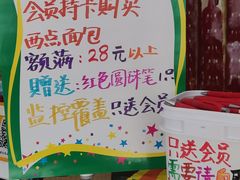 会员持卡购买
两点面包
额满:28元以上
赠送:红色圆珠笔1只
监控覆盖 只送会员
只送会员
要请